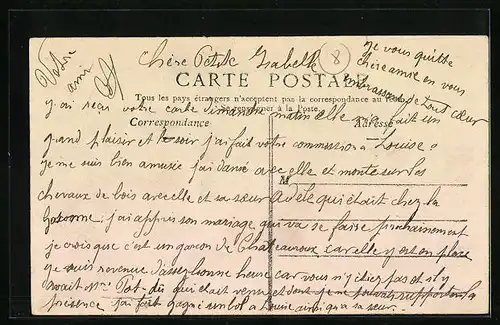 Chère Petite Isabelle
8
je vous quitte
chère amie en vous
embrassant de tout cœur
Votre
ami
CARTE POSTALE
Tous les pays étrangers n'acceptent pas la correspondance au recto
se renseigner à la Poste
j'ai reçu votre carte Dimanche matin elle m'a fait un
Correspondance
Adresse
grand plaisir et le soir j'ai fait votre commission à Louise
je me suis bien amusée j'ai dansé avec elle et monté sur les
M
chevaux de bois avec elle et sa sœur Adèle qui était chez la
j'ai appris son mariage qui va se faire prochainement
je crois que c'est un garçon de Chateauroux car elle y est en place
je suis revenue d'assez bonne heure car vous n'y étiez pas et il y
avait Mr Pot-du qui était venu et dont je ne pouvais supporter la
présence j'ai fait à Louise ainsi qu'à sa sœur.